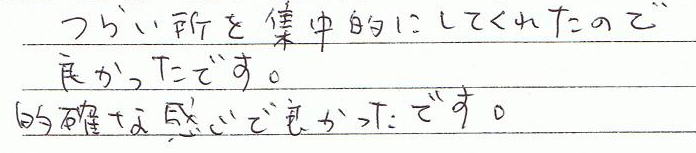 つらい所を集中的にしてくれたので
良かったです。
的確な感じで良かったです。